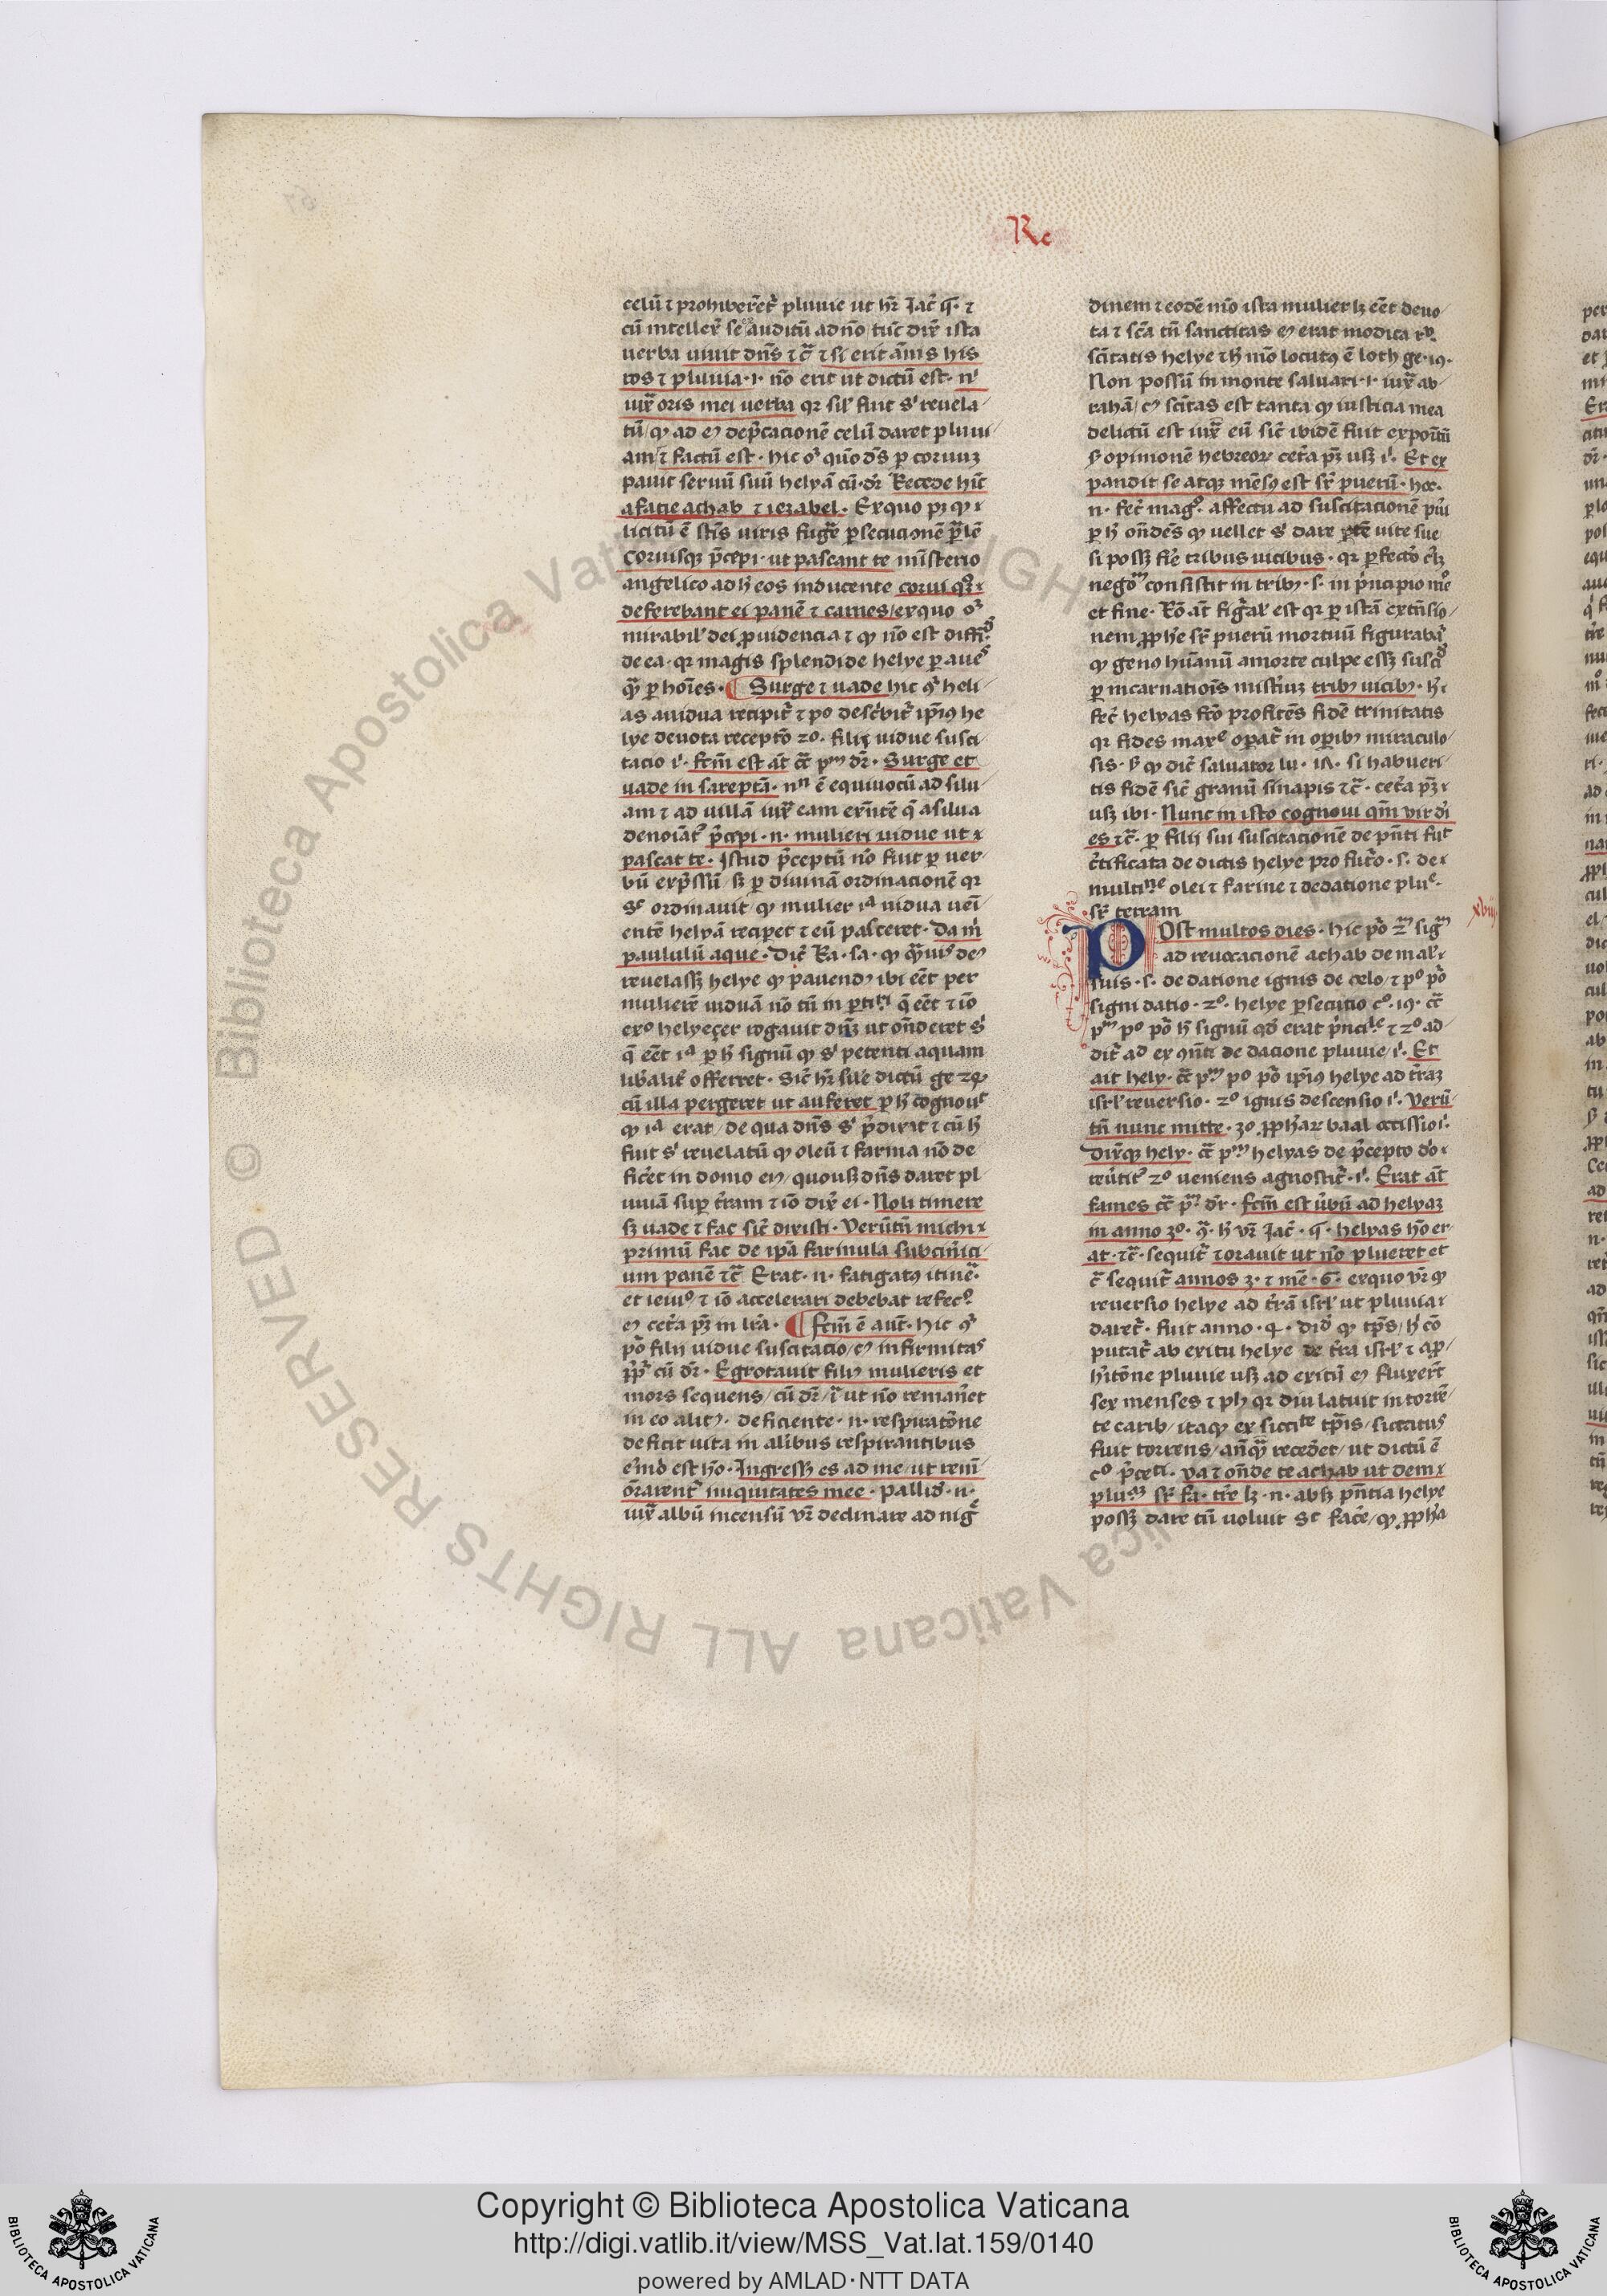 Re
celū ⁊ prohiberēt᷑ pluuie ut hr̄ Jac̄ q̄· ⁊
cū intellex̄ se auditū ad nō/ tūc dix̄ ista
uerba uiuit dn̄s ⁊ c̄ ⁊ si erit ānis his
ros ⁊ pluuia·ı· nō erit ut dictū est· nı̄
iux̄ oris mei uerba qr sil' fuit sı̄ reuela
tū/ ꝙ ad eꝰ dep̄cacionē celū daret pluui
am/ ⁊ factū est· hic oꝫ quō ds̄ ꝑ coruuꝫ
pauit seruū suū helyā cū·dr̄ Recede hīc
a facie achab ⁊ iezabel· Ex quo pꝫ ꝙ
licitū ē sc̄is uiris fuḡe ꝑsecucionē p̄lē
coruisqꝫ p̄cepi· ut pascant te misterio
angelico ad ħ eos inducente corui qꝫ
deferebant ei panē ⁊ carnes/ ex quo oꝫ
mirabil' dei ꝓuidencia ⁊ ꝙ nō est diffiđ
de ea· qr magis splendide helye ꝑ aues
qͣ ꝑ hoīes· Surge ⁊ uade hic qꝰ heli
as a uidua recipit᷑ ⁊ po describit᷑ ipīus he
lye deuota receptō 2o· filii uidue susci
tacio ı̄· fcm̄ est āt c̄ pm dr̄· Surge et
uade in sareptā· nn ē equiuocū ad silu
am ⁊ ad uillā iux̄ eam ex̄ntē q̄ a silua
denoiāt᷑ p̄cepi·n· mulieri uidue ut
pascat te· Istud p̄ceptū nō fuit ꝑ uer
bū exp̄ssū/ sꝫ ꝑ diuinā ordinacionē qr
sc ordinauit/ ꝙ mulier ıa uidua ueī
entē helyā reciperet ⁊ eū pasceret· Da m̄
paululū aque· Dic̄ Ra·sa· ꝙ qͣuis deꝰ
reuelassꝫ helye ꝙ pauendꝰ ibi eēt per
mulierē uiduā nō tn̄ in ꝑticli q̄ eēt ⁊ iō
q̄ eēt ıa ꝑ ħ signū ꝙ sı̄ petenti aquam
lib̄alit᷑ offerret· sic̄ hr̄ sile dictū ge 24
cū illa pergeret ut auferret ꝑ ħ cognouit
ꝙ ıa erat/ de qua dn̄s sı̄ p̄dixit ⁊ cū ħ
fuit sı̄ reuelatū ꝙ oleū ⁊ farina nō de
fic̄et in domo eꝰ/ quousꝫ dn̄s daret pl
uuiā suꝑ t̄ram ⁊ iō dix̄ ei· Noli timere
sꝫ uade ⁊ fac sic̄ dixisti· Verūtn̄ michi
primū fac de ipā farinula subcin̄ici
um panē ⁊c̄ Erat·n· fatigatꝰ itine᷑·
et ieiuꝰ ⁊ iō accelerari debebat refecō
eꝰ cet̄a pꝫ in lr̄a· fcm̄ ē aut᷑· hic qꝰ
pō filii uidue suscitacio/ eꝰ infirmitas
p̄p̄ cū dr̄· Egrotauit filiꝰ mulieris et
mors sequens/ cū dr̄/ ı̄ ut nō remān̄et
in eo alitꝰ· deficiente·n· respiratōne
deficit uita in alibus respirantibus
ingressꝰ es ad me/ ut rem̄
ōrarent᷑ iniquitates mee· Pallidꝰ·n·
iux̄ albū incensū vr̄ declinare ad nig᷑
dinem ⁊ eodē mō ista mulier lꝫ eēt deuo
ta ⁊ sc̄a tn̄ sanctitas eꝰ erat modica rū
sc̄itatis helye ⁊ ħ mō locutꝰ ē loth ge·19·
Non possū in monte saluari·ı· iux̄ ab
rahā/ eꝰ sc̄itas est tanta ꝙ iusticia mea
delictū est iux̄ eū sic̄ ibidē fuit expoītū
ẜ opinionē hebreorꝫ cet̄a pꝫ usꝫ ı̄· Et ex
pandit se atqꝫ mēsꝰ est sr̄ puerū· hoc·
n· fec̄ magō· affectu ad suscitacionē pūi
ꝑ ħ on̄dēs ꝙ uellet sı̄ dare ꝑtē uite sue
si possꝫ fıē tribus uicibus· qr ꝑfectō cꝰlꝫ
negōm consistit in tribꝰ·s· in p̄ncipio mō
et fine· Rō āt fiḡal' est qr ꝑ istā extn̄sio
nem ꝓphē sr̄ puerū mortuū figurabat᷑
ꝙ genꝰ hūanū a morte culpe essꝫ suscitđ
ꝑ incarnatiōīs mist̄iuꝫ tribꝰ uicibꝰ· ħ·
fec̄ helyas fr̄o profitēs fidē trinitatis
qr fides maxe oꝑat᷑ in oꝑibꝰ miraculo
sis· ẜ ꝙ dic̄ saluator lu·17· si habueri
tis fidē sic̄ granū sinapis ⁊c̄· cet̄a pꝫ
usꝫ ibi· Nunc in isto cognoui qm̄ vir di
es ⁊c̄· ꝑ filii sui suscitacionē de pn̄ti fuit
c̄tificata de dictis helye pro fut̄o·s· de
multine olei ⁊ farine ⁊ de datione plue·
sr̄ terram
xviii
Post multos dies· hic pō 2m sigm
ad reuocacionē achab de mal'
suis·s· de datione ignis de celo/ ⁊ po pō
signi datio· 2o· helye ꝑsecutio co·19· c̄
pm po pō ħ signū qđ erat p̄ncile ⁊ 2o ad
dit᷑ ad ex qn̄ti de dacione pluuie/ ı̄· Et
ait hely· c̄ pm po pō ipīus helye ad t̄raꝫ
isrl' reuersio· 2o ignis descensio ı̄· Verū
tn̄ nunc mitte· 3o ꝓphar̄ baal occissio ı̄·
Dix̄qꝫ hely· c̄ pm helyas de p̄cepto do
reūtit᷑ 2o ueniens agnoscit᷑· ı̄· Erat āt
fames c̄ pm dr̄· fcm̄ est ūbū ad helyaꝫ
in anno 3o· qͣ· ħ vr̄ Jac̄· q̄· helyas hō er
at· ⁊c̄· sequit᷑ ⁊ orauit ut nō plueret et
c̄ sequit᷑ annos 3· ⁊ mē·6· ex quo vr̄ ꝙ
reuersio helye ad t̄rā isrl' ut pluuia
daret᷑· fuit anno·4· Dicđ ꝙ tp̄s/ ħ cō
putat᷑ ab exitu helye de t̄ra isrl' ⁊ a ꝓ
hitōne pluuie usꝫ ad exitū eꝰ fluxer̄t
sex menses ⁊ plꝰ qr diu latuit in torrē
te carib/ itaqꝫ ex siccite tp̄is/ siccatus
fuit torrens/ an̄qͣ recedēt/ ut dictū ē
co p̄ceti· va ⁊ on̄de te achab ut dem
pluaꝫ sr̄ fa· t̄re lꝫ·n· absꝫ pn̄tia helye
possꝫ dare tn̄ uoluit sc fac̄e/ ꝙ ꝓphıa
Copyright © Biblioteca Apostolica Vaticana
http://digi.vatlib.it/view/MSS_Vat.lat.159/0140
powered by AMLAD·NTT DATA
© Biblioteca Apostolica Vaticana ALL RIGHTS RESERVED
BIBLIOTECA APOSTOLICA VATICANA
BIBLIOTECA APOSTOLICA VATICANA